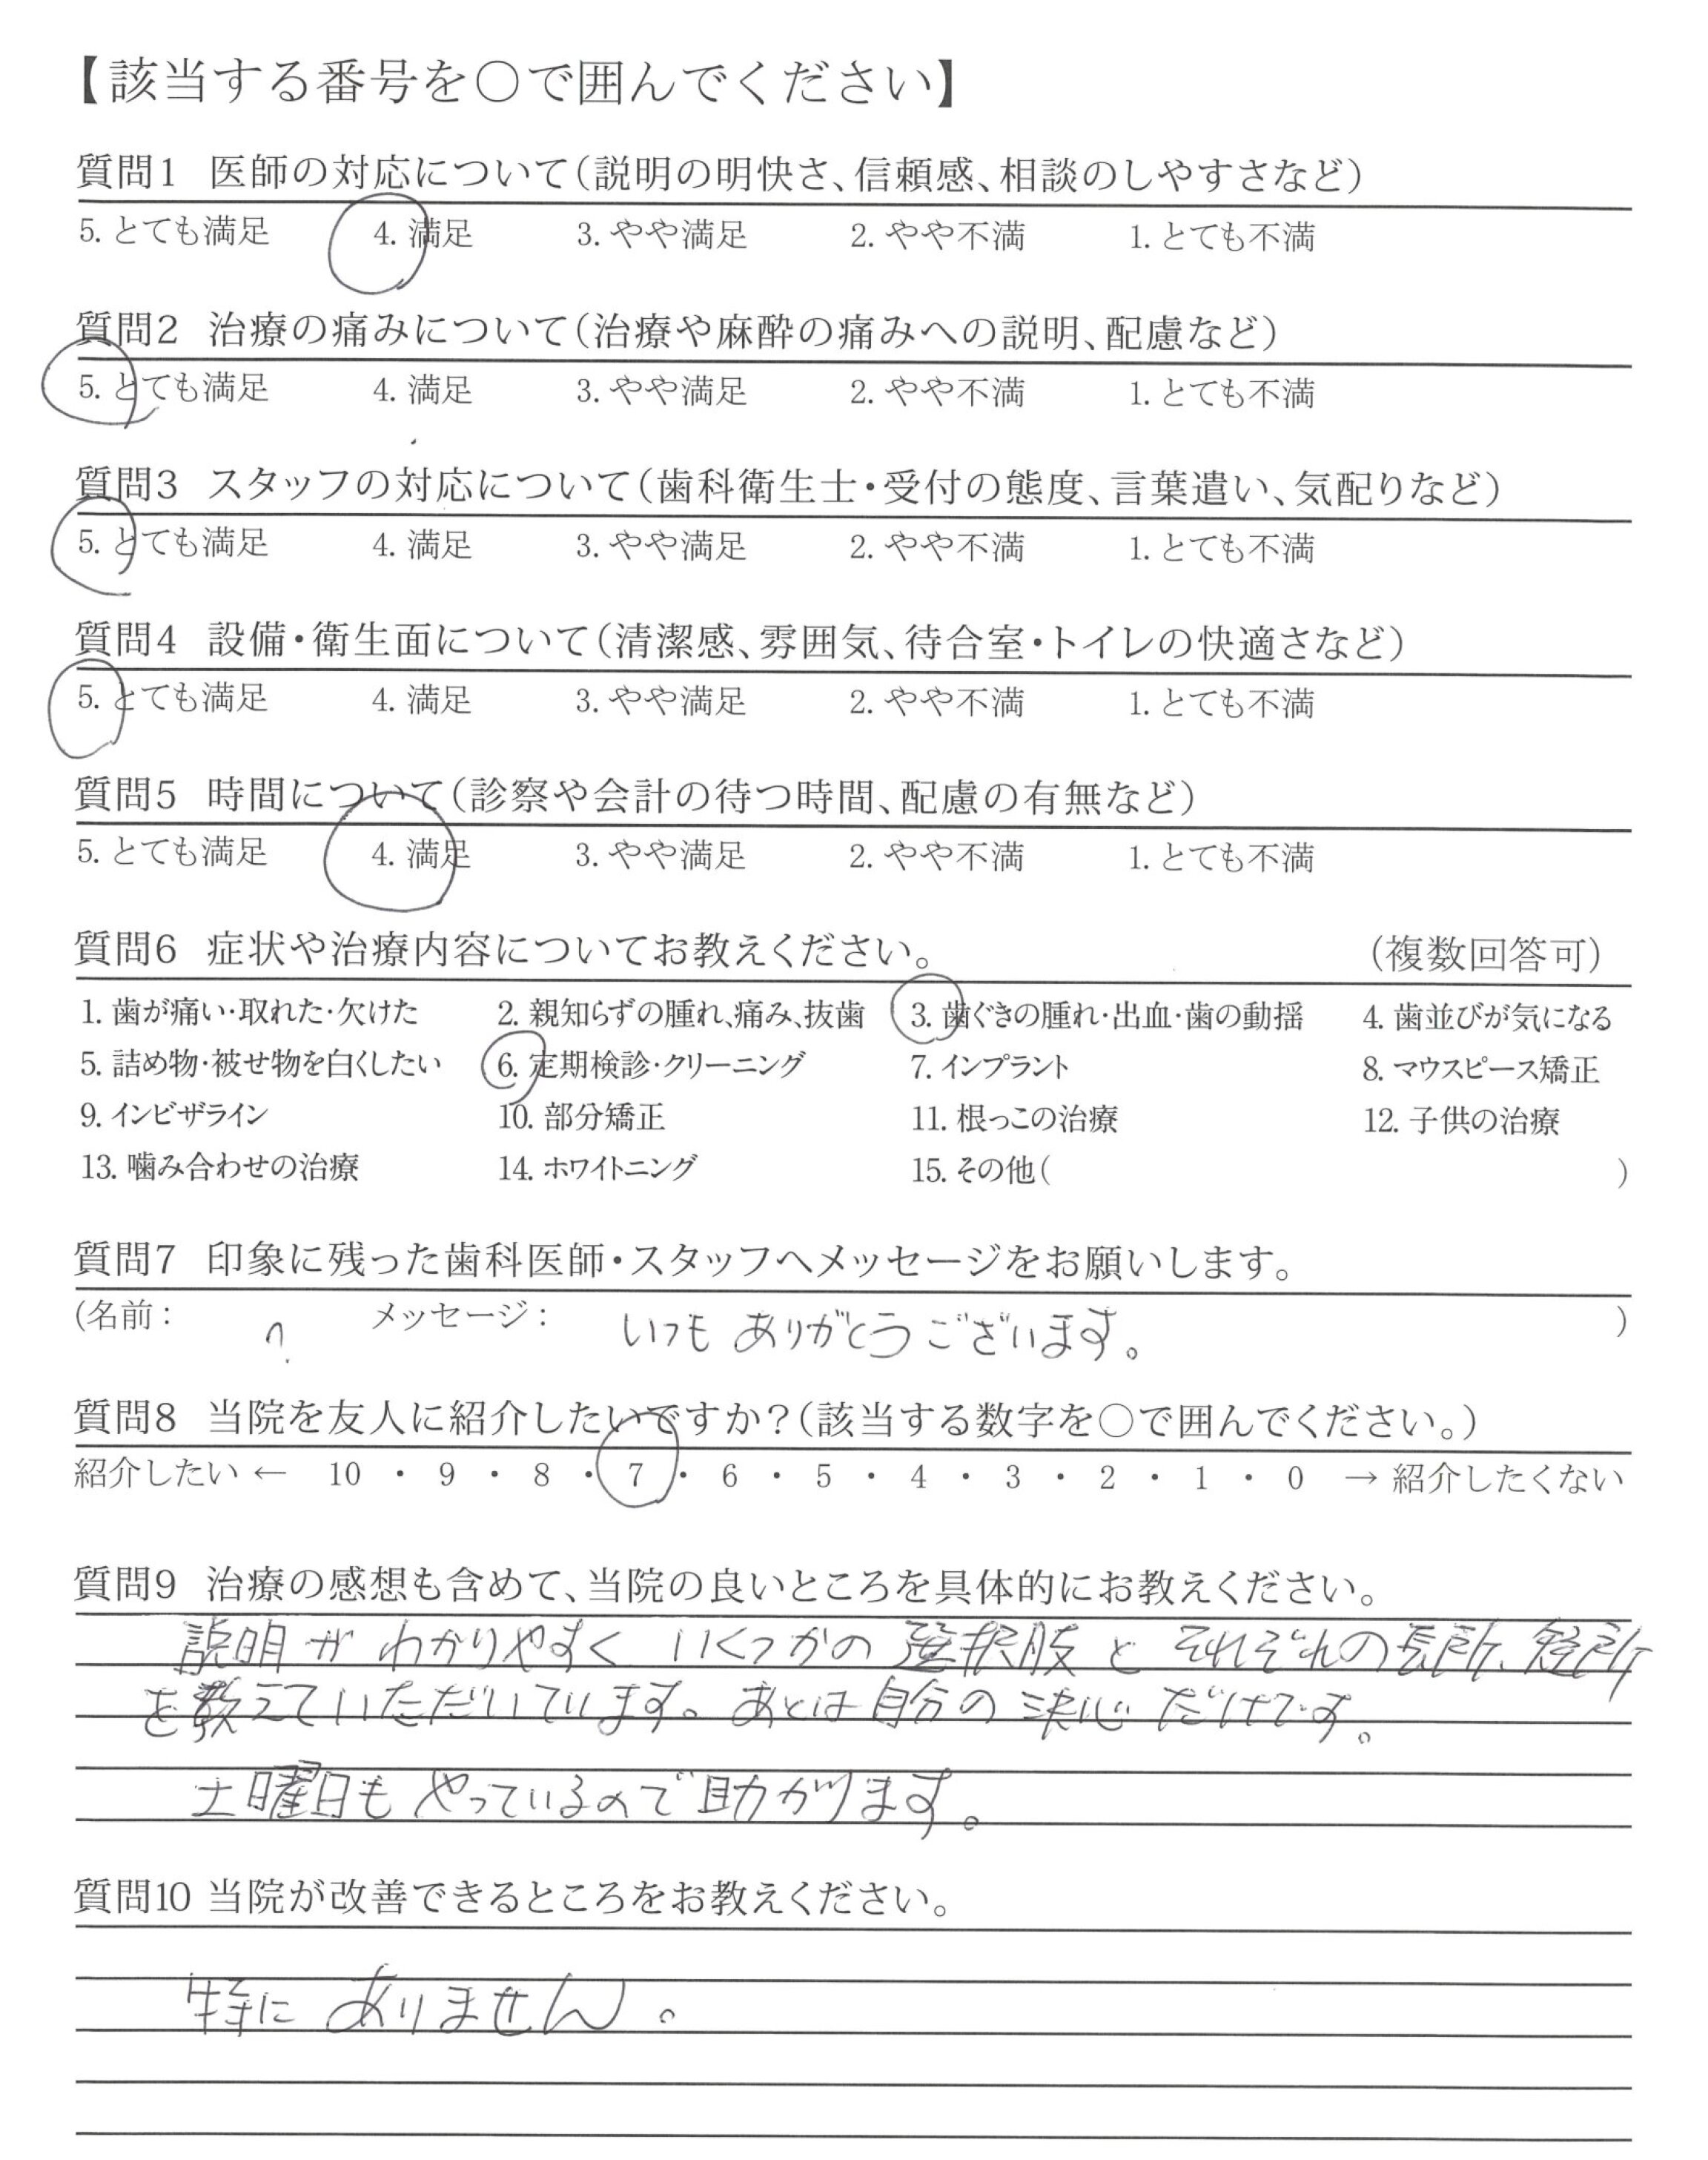 【該当する番号を○で囲んでください】
質問1 医師の対応について(説明の明快さ、信頼感、相談のしやすさなど)
5. とても満足 4. 満足 3. やや満足 2. やや不満 1. とても不満
質問2 治療の痛みについて(治療や麻酔の痛みへの説明、配慮など)
5. とても満足 4. 満足 3. やや満足 2. やや不満 1. とても不満
質問3 スタッフの対応について(歯科衛生士・受付の態度、言葉遣い、気配りなど)
5. とても満足 4. 満足 3. やや満足 2. やや不満 1. とても不満
質問4 設備・衛生面について(清潔感、雰囲気、待合室・トイレの快適さなど)
5. とても満足 4. 満足 3. やや満足 2. やや不満 1. とても不満
質問5 時間について(診察や会計の待つ時間、配慮の有無など)
5. とても満足 4. 満足 3. やや満足 2. やや不満 1. とても不満
質問6 症状や治療内容についてお教えください。 (複数回答可)
1. 歯が痛い・取れた・欠けた 2. 親知らずの腫れ、痛み、抜歯 3. 歯ぐきの腫れ・出血・歯の動揺 4. 歯並びが気になる
5. 詰め物・被せ物を白くしたい 6. 定期検診・クリーニング 7. インプラント 8. マウスピース矯正
9. インビザライン 10. 部分矯正 11. 根っこの治療 12. 子供の治療
13. 噛み合わせの治療 14. ホワイトニング 15. その他( )
質問7 印象に残った歯科医師・スタッフへメッセージをお願いします。
(名前: ? メッセージ: いつもありがとうございます。 )
質問8 当院を友人に紹介したいですか?(該当する数字を○で囲んでください。)
紹介したい ← 10 ・ 9 ・ 8 ・ 7 ・ 6 ・ 5 ・ 4 ・ 3 ・ 2 ・ 1 ・ 0 → 紹介したくない
質問9 治療の感想も含めて、当院の良いところを具体的にお教えください。
説明がわかりやすく いくつかの選択肢とそれぞれの長所、短所
を教えていただいています。あとは自分の決心だけです。
土曜日もやっているので助かります。
質問10 当院が改善できるところをお教えください。
特にありません。